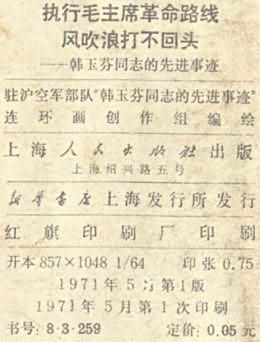 执行毛主席革命路线
风吹浪打不回头
——韩玉芬同志的先进事迹
驻沪空军部队“韩玉芬同志的先进事迹”
连环画创作组编绘
上海人民出版社出版
上海绍兴路五号
新华书店上海发行所发行
红旗印刷厂印刷
开本 857×1048 1/64 印张 0.75
1971年5月第1版
1971年5月第1次印刷
书号: 8·3·259 定价: 0.05元